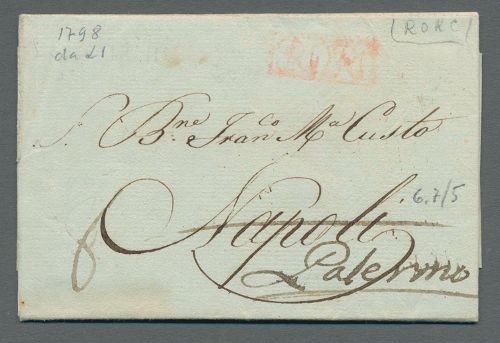 1798
da £1
(ROKC)
S. Bne Franco Ma Custo
Napoli
6.7/5
Palermo